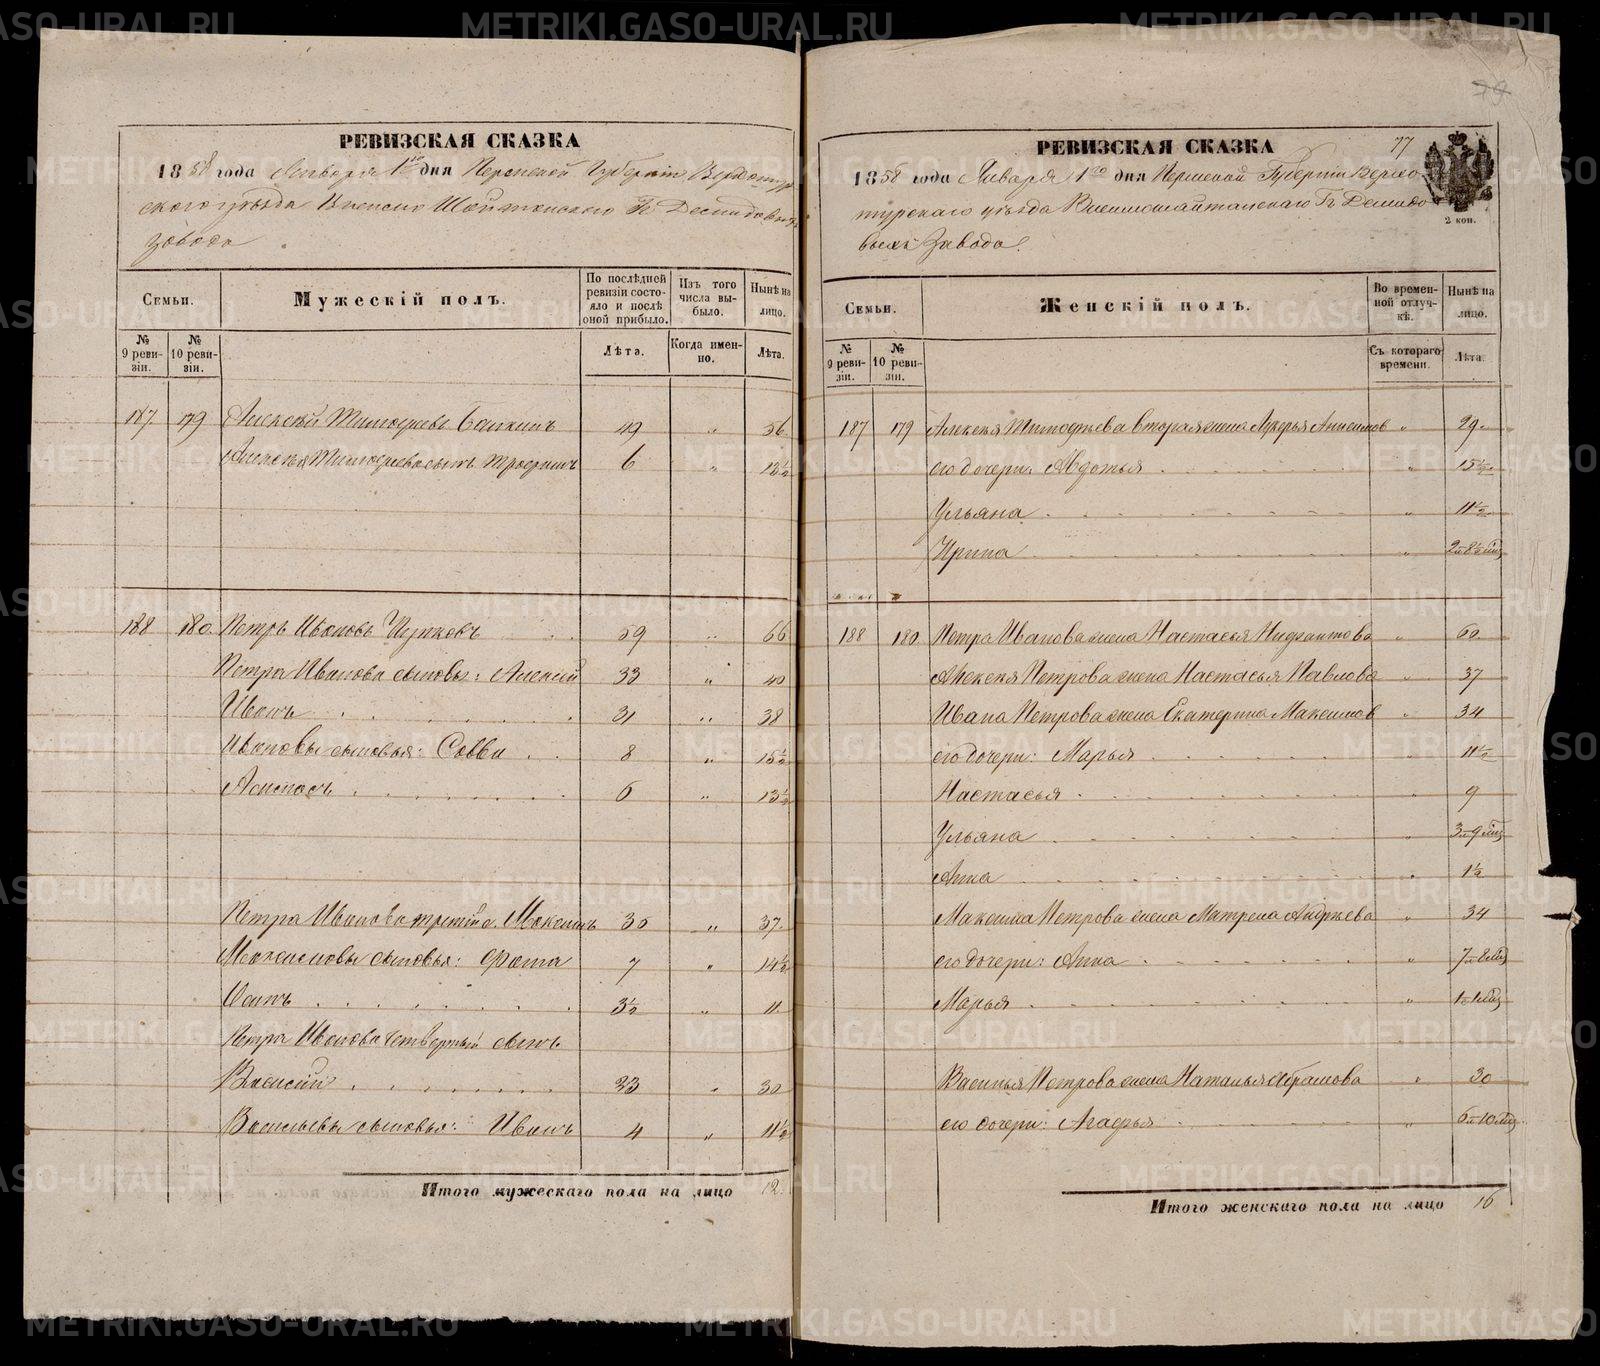 РЕВИЗСКАЯ СКАЗКА
1858 года Января 1го дня Пермской Губерніи Верхотур
скаго уѣзда Висимо Шайтанскаго Гг. Демидовыхъ
завода
Семьи.
Мужескій полъ.
По послѣдней ревизіи состояло и послѣ оной прибыло.
Изъ того числа выбыло.
Нынѣ на лицо.
№ 9 ревизіи.
№ 10 ревизіи.
Лѣта.
Когда именно.
Лѣта.
187. 179 Алексѣй Тимофеевъ 49 " 56
Алексѣя Тимофеева сынъ 6 " 13½
188 180 Петръ Ивановъ 59 " 66
Петра Иванова сыновья: Алексѣй 33 " 40
Иванъ 31 " 38
Ивановы сыновья: Савва 8 " 15½
6 " 13½
Петра Иванова третій с. Максимъ 30 " 37.
Максимовы сыновья: Фома 7 " 14½
Осипъ 3½ " 11
Петра Иванова четвертый сынъ
Василій 23 " 30
Васильевы сыновья: Иванъ 4 " 11½
Итого мужескаго пола на лицо 12
77
РЕВИЗСКАЯ СКАЗКА
2 коп.
1858 года Января 1го дня Пермской Губерніи Верхо
турскаго уѣзда Висимошайтанскаго Гг Демидо
выхъ Завода.
Семьи.
Женскій полъ.
Во временной отлучкѣ.
Нынѣ на лицо.
№ 9 ревизіи.
№ 10 ревизіи.
Съ котораго времени.
Лѣта.
187 179 Алексѣя Тимофѣева вторая жена Лукерья Анисимов " 29
его дочери: Авдотья " 15½
Ульяна " 11½
Ирина " 2 и 8½ мѣс
188 180 Петра Иванова жена Настасья " 60
Алексѣя Петрова жена Настасья Павлова " 37
Ивана Петрова жена Екатерина Максимов " 34
его дочери: Марья " 11½
Настасья " 9
Ульяна " 3 и 9 мѣс
Анна " 1½
Максима Петрова жена Матрена Андрѣева " 34
его дочери: Анна " 7 и 8 мѣс
Марья " 1 и 1 мѣс
Василья Петрова жена Наталья Абрамова " 30
его дочери: Агафья " 6 и 10 мѣс
Итого женскаго пола на лицо 16
METRIKI.GASO-URAL.RU